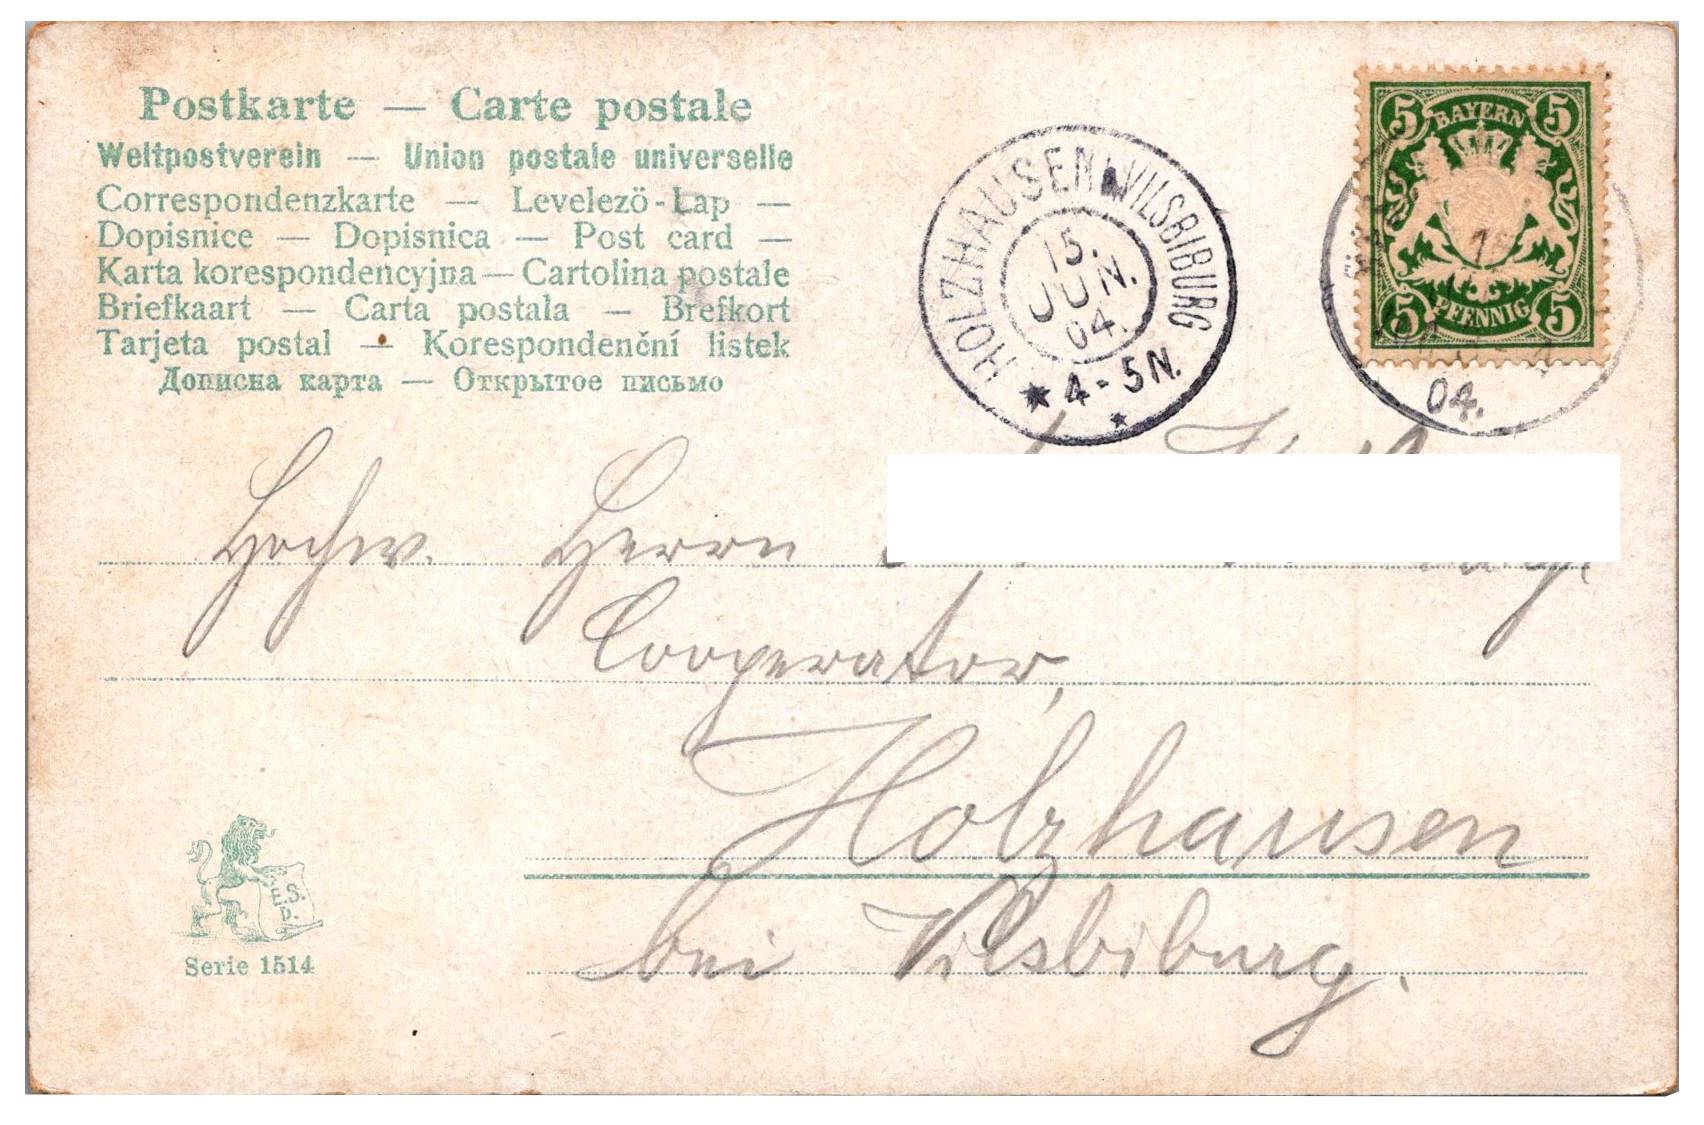 Postkarte — Carte postale
Weltpostverein — Union postale universelle
Correspondenzkarte — Levelező-Lap —
Dopisnice — Dopisnica — Post card —
Karta korespondencyjna — Cartolina postale
Briefkaart — Carta postala — Brefkort
Tarjeta postal — Korespondenční listek
Дописна карта — Открытое письмо
HOLZHAUSEN b/VILSBIBURG
15.
JUN.
04.
4-5N.
5 BAYERN 5
5 PFENNIG 5
04.
Hochw. Herrn
Cooperator,
Holzhausen
bei Vilsbiburg.
E.S.
D.
Serie 1514